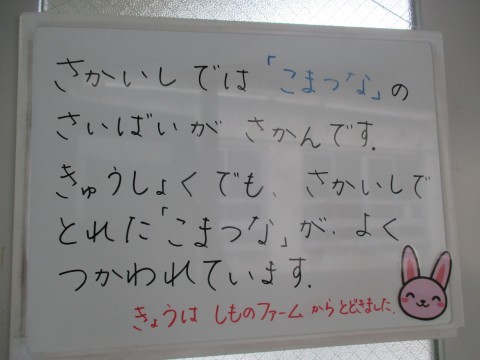 さかいしでは「こまつな」の
さいばいが さかんです.
きゅうしょくでも、さかいしで
とれた「こまつな」が、よく
つかわれています.
きょうは しものファーム からとどきました.